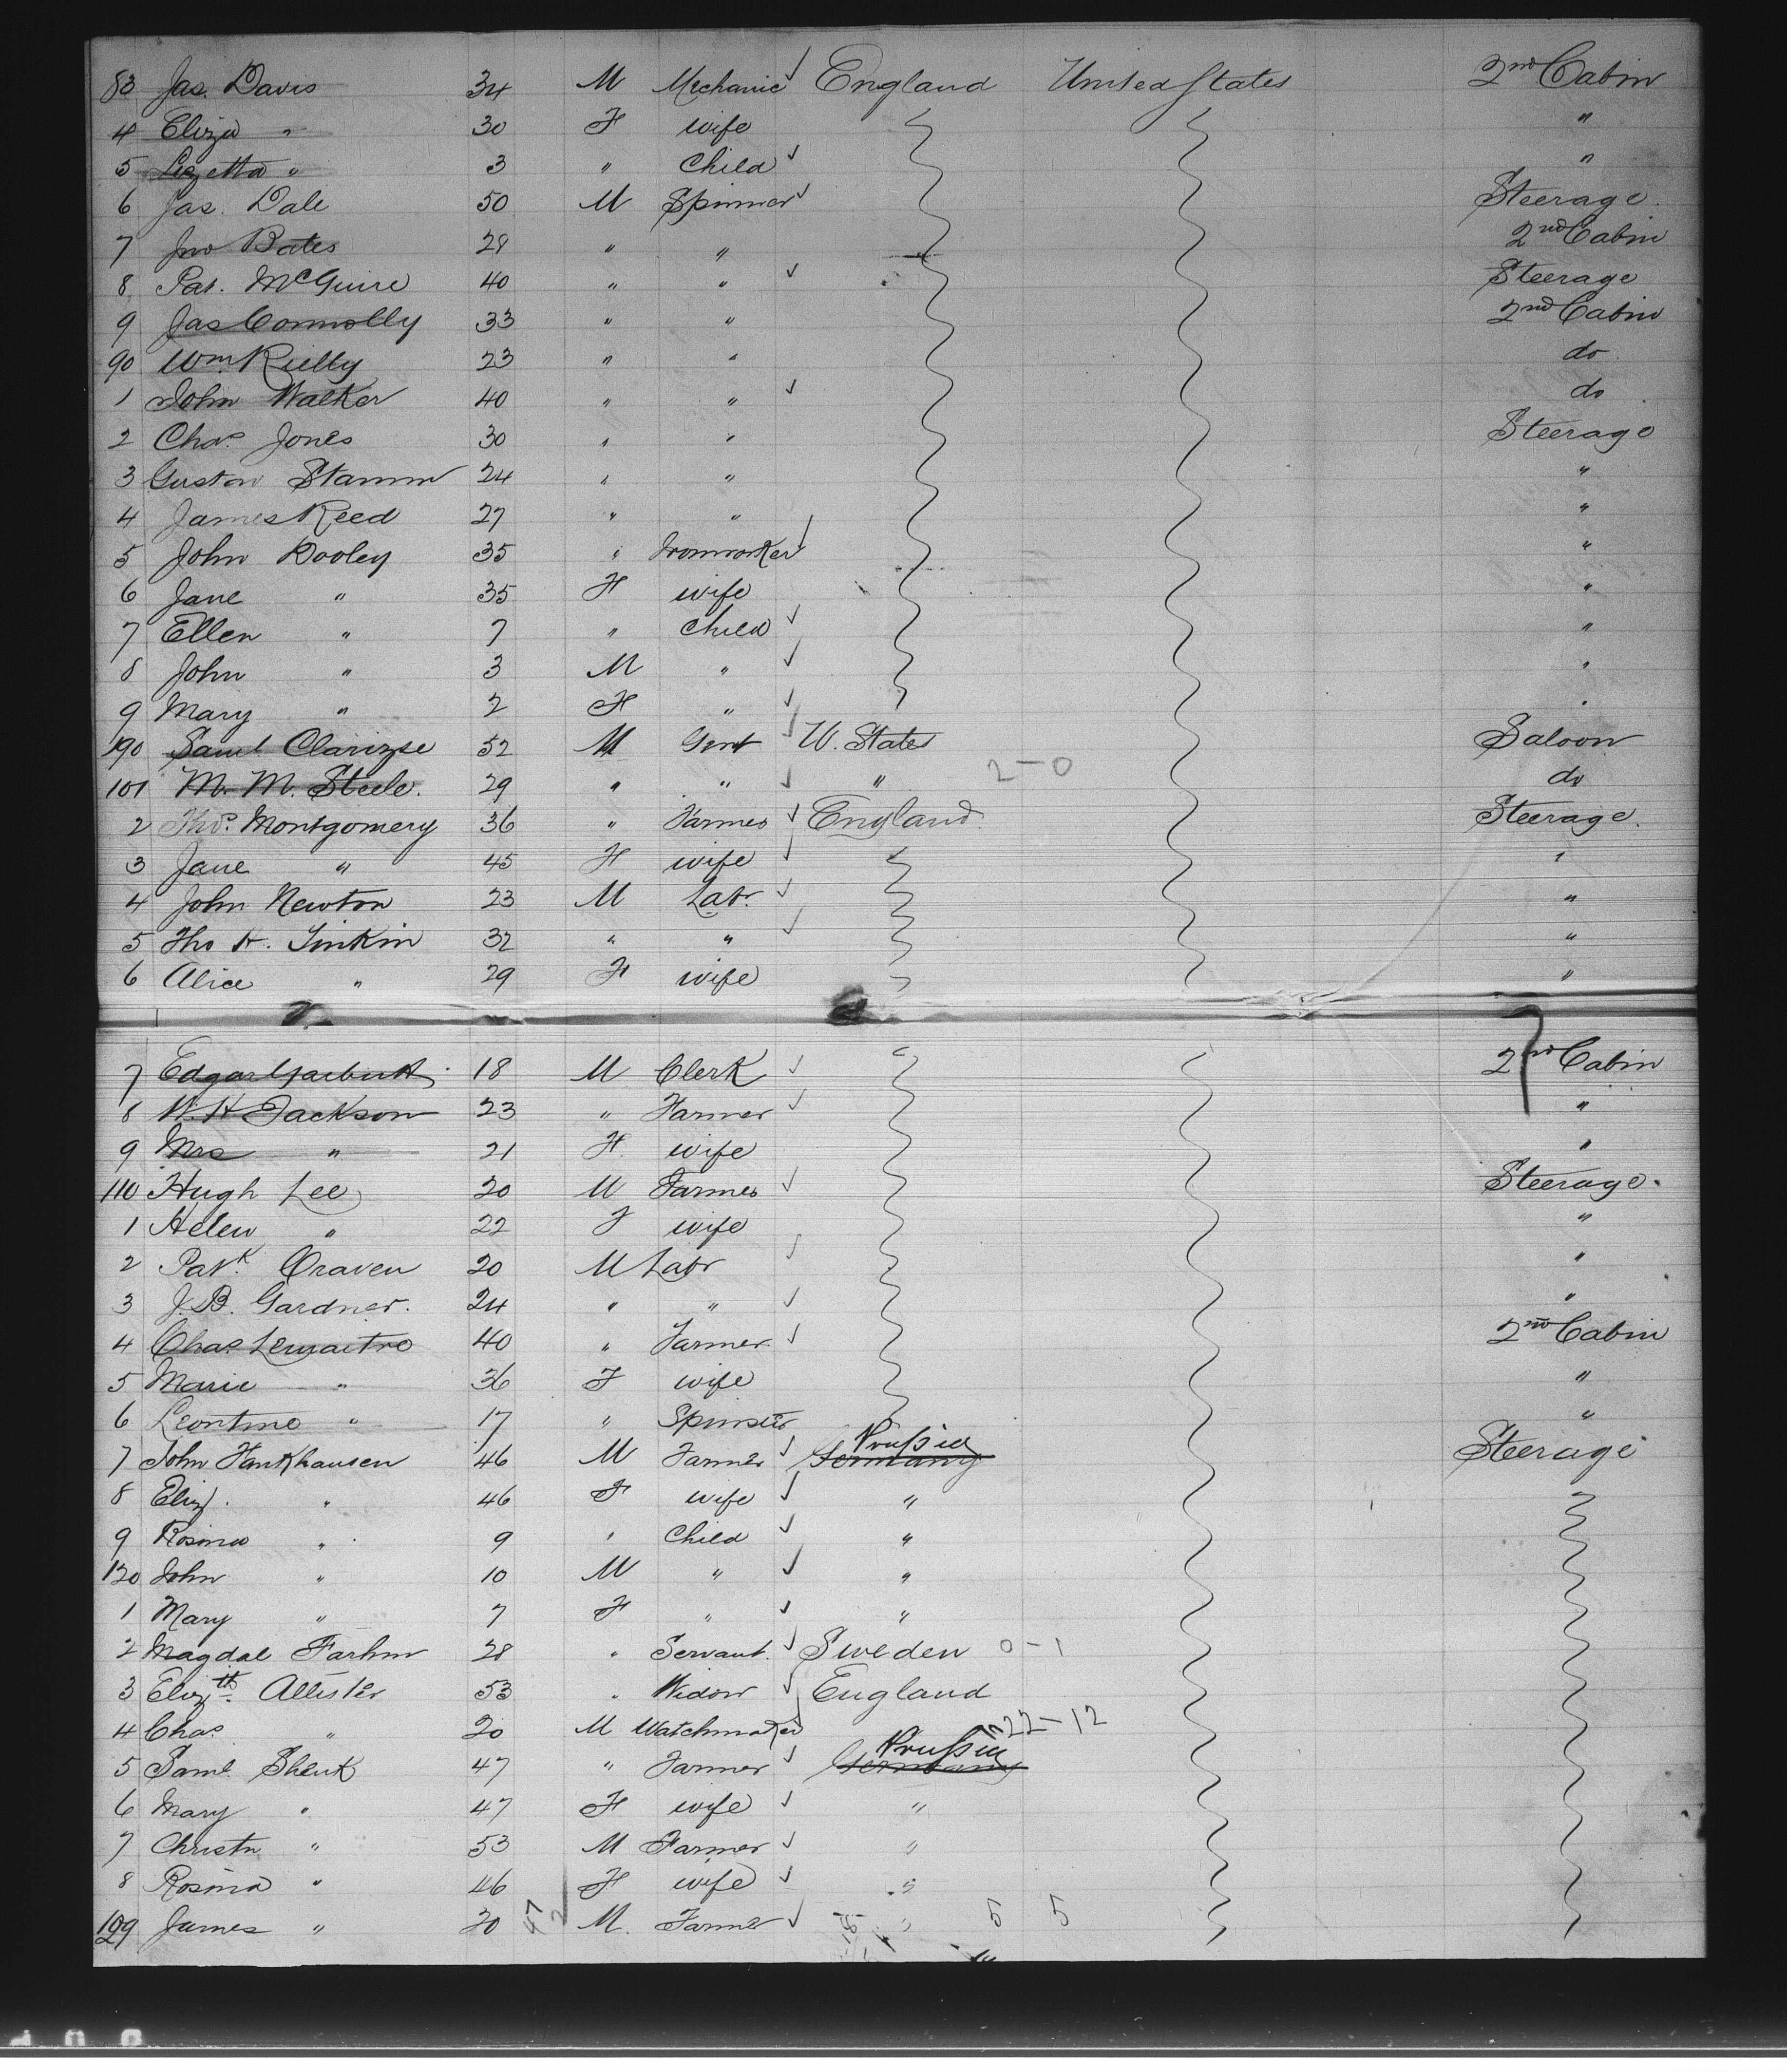 83 Jas. Davis 34 M Mechanic England United States 2nd Cabin
4 Eliza " 30 F wife "
5 Lizetta " 3 " Child "
6 Jas. Dale 50 M Spinner Steerage.
7 Jno Bates 28 " " 2nd Cabin
8 Pat. McGuire 40 " " Steerage
9 Jas Connolly 33 " " 2nd Cabin
90 Wm Rielly 23 " " do
1 John Walker 40 " " do
2 Chas. Jones 30 " " Steerage
3 Gustav Stamm 24 " " "
4 James Reed 27 " " "
5 John Dooley 35 " Ironworker "
6 Jane " 35 F wife "
7 Ellen " 7 " Child "
8 John " 3 M " "
9 Mary " 2 F " "
190 Saml 52 M Gent U. States Saloon
101 M. M. Steele. 29 " " " 2-0 do
2 Thos. Montgomery 36 " Farmer England Steerage.
3 Jane " 45 F wife "
4 John Newton 23 M Labr. "
5 Tho H. Jinkin 32 " " "
6 Alice " 29 F wife "
7 Edgar 18 M Clerk 2nd Cabin
8 W. H Jackson 23 " Farmer "
9 Mrs " 21 F. wife "
110 Hugh Lee 20 M Farmer Steerage.
1 Helen " 22 F wife "
2 Patk. Craven 20 M Labr "
3 J. B. Gardner. 24 " " "
4 Chas. Lemaitre 40 " Farmer 2nd Cabin
5 Marie " 36 F wife "
6 Leontine " 17 " Spinster "
Prussia
7 John Hankhausen 46 M Farmer Germany Steerage
8 Eliz. " 46 F wife "
9 Rosina " 9 " Child "
120 John " 10 M " "
1 Mary " 7 F " "
2 Magdal Farhm 28 " Servant. Sweden 0-1
3 Elizth. Allister 53 " Widow England
4 Chas. " 20 M Watchmaker 22-12
Prussia
5 Saml. Shenk 47 " Farmer Germany
6 Mary " 47 F wife "
7 Christn " 53 M Farmer "
8 Rosina " 46 F wife "
129 James " 20 M. Farmer " 5 5